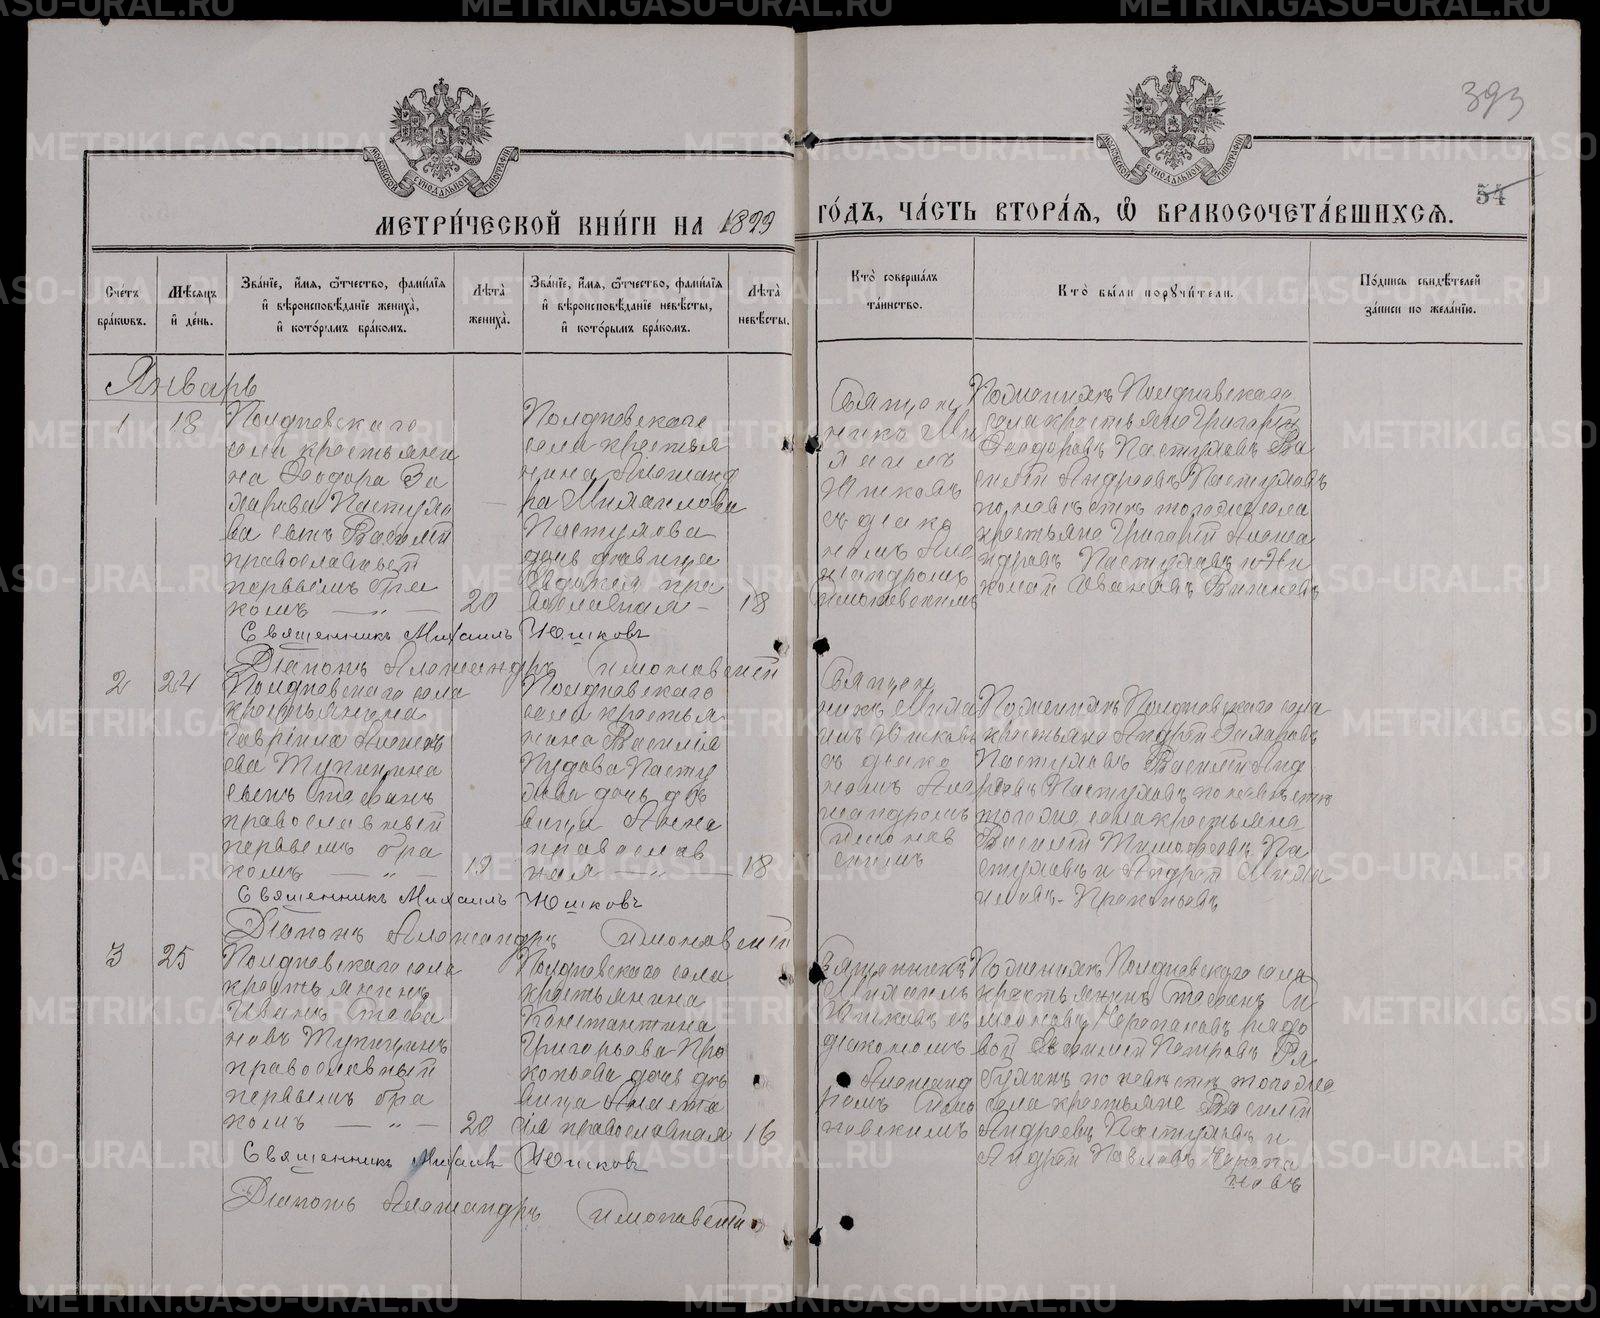 393
54
МЕТРИ́ЧЕСКОЙ КНИ́ГИ НА 1899
ГО́ДЪ, ЧА́СТЬ ВТОРА́Я, Ѡ҆ БРАКОСОЧЕТА́ВШИХСЯ.
Сче́тъ бра́ковъ.
Мѣ́сяцъ и҆ де́нь.
Зва́нїе, и҆́мя, ѻ҆́тчество, фами́лїя
и҆ вѣроисповѣ́данїе жениха̀,
и҆ кото́рымъ бра́комъ.
Лѣ́та жениха̀.
Зва́нїе, и҆́мя, ѻ҆́тчество, фами́лїя
и҆ вѣроисповѣ́данїе невѣ́сты,
и҆ кото́рымъ бра́комъ.
Лѣ́та невѣ́сты.
Кто̀ соверша́лъ
та́инство.
Кто̀ бы́ли порꙋчи́тели.
По́дпись свидѣ́телей
за́писи по жела́нїю.
Январь
1
18
Полдневскаго
села крестьяни
на Ѳеодора За
харова Пастухо
ва сынъ Василій
православный
первымъ бра
комъ — „ —
20
Полдневскаго
села крестья
нина Александ
ра Михаилова
Пастухова
дочь девица
Евдокія пра
вославная —
18
Священ
никъ Ми
хаилъ
Юшковъ
съ діако
номъ Але
ксандромъ
Симоновскимъ
По женихѣ Полдневскаго
села крестьяне Григорій
Ѳеодоровъ Пастуховъ Ва
силій Андреевъ Пастуховъ
по невѣстѣ того же села
крестьяне Григорій Алекса
ндровъ Пастуховъ и Ни
колай Ивановъ
Священникъ Михаилъ Юшковъ
Діаконъ Александръ Симоновскій
2
24
Полдневскаго села
крестьянина
Гавріила Алексѣ
ева Тупицина
сынъ Стефанъ
православный
первымъ бра
комъ — „ —
19
Полдневскаго
села крестья
нина Василія
Пудова Пасту
хова дочь дѣ
вица Анна
православ
ная
18
Священ
никъ Миха
илъ Юшковъ
съ діако
номъ Але
ксандромъ
Симонов
скимъ
По женихѣ Полдневскаго села
крестьяне Андрей Захаровъ
Пастуховъ Василій Анд
реевъ Пастуховъ по невѣстѣ
того же села крестьяне
Василій Тимофеевъ Па
стуховъ и Андрей Миха
иловъ Прокопьевъ
Священникъ Михаилъ Юшковъ
Діаконъ Александръ Симоновскій
3
25
Полдневскаго села
крестьянинъ
Иванъ Стефа
новъ Тупицинъ
православный
первымъ бра
комъ — „ —
20
Полдневскаго села
крестьянина
Константина
Григорьева Про
копьева дочь дѣ
вица Анаста
сія православная
16
Священникъ
Михаилъ
Юшковъ съ
діакономъ
Александ
ромъ Симо
новскимъ
По женихѣ Полдневскаго села
крестьянинъ Стефанъ Си
меоновъ Черепановъ рядо
вой Петровъ
по невѣстѣ того же
села крестьяне Василій
Андреевъ Пастуховъ и
Андрей Павловъ Черепа
новъ
Священникъ Михаилъ Юшковъ
Діаконъ Александръ Симоновскій
METRIKI.GASO-URAL.RU